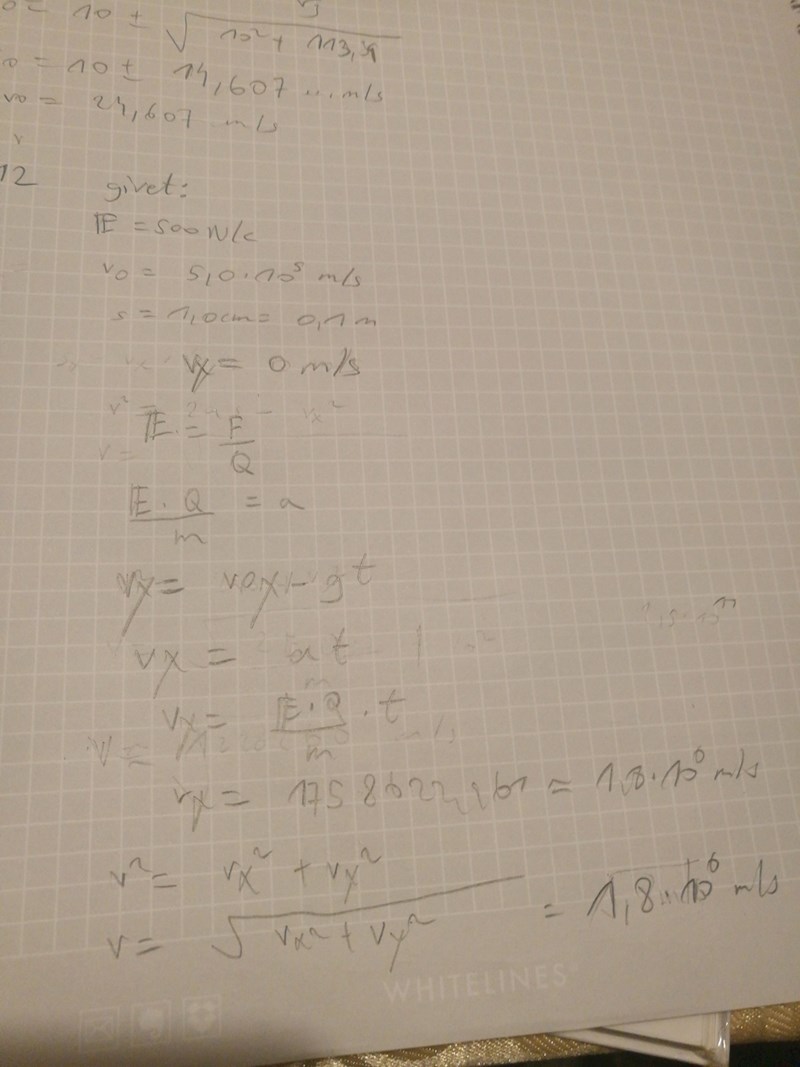 = 10 ± √ 10² + 113,4
= 10 ± 14,607 ... m/s
v0 = 24,607 m/s
12 givet:
E = 500 N/C
v0 = 5,0·10⁵ m/s
s = 1,0cm = 0,1m
vy = 0 m/s
E = F/Q
E·Q/m = a
vy = v0y - gt
vx = at
vx = E·Q/m · t
vx = ≈ 1,8·10⁶ m/s
v² = vx² + vy²
v = √ vx² + vy² = 1,8·10⁶ m/s
WHITELINES